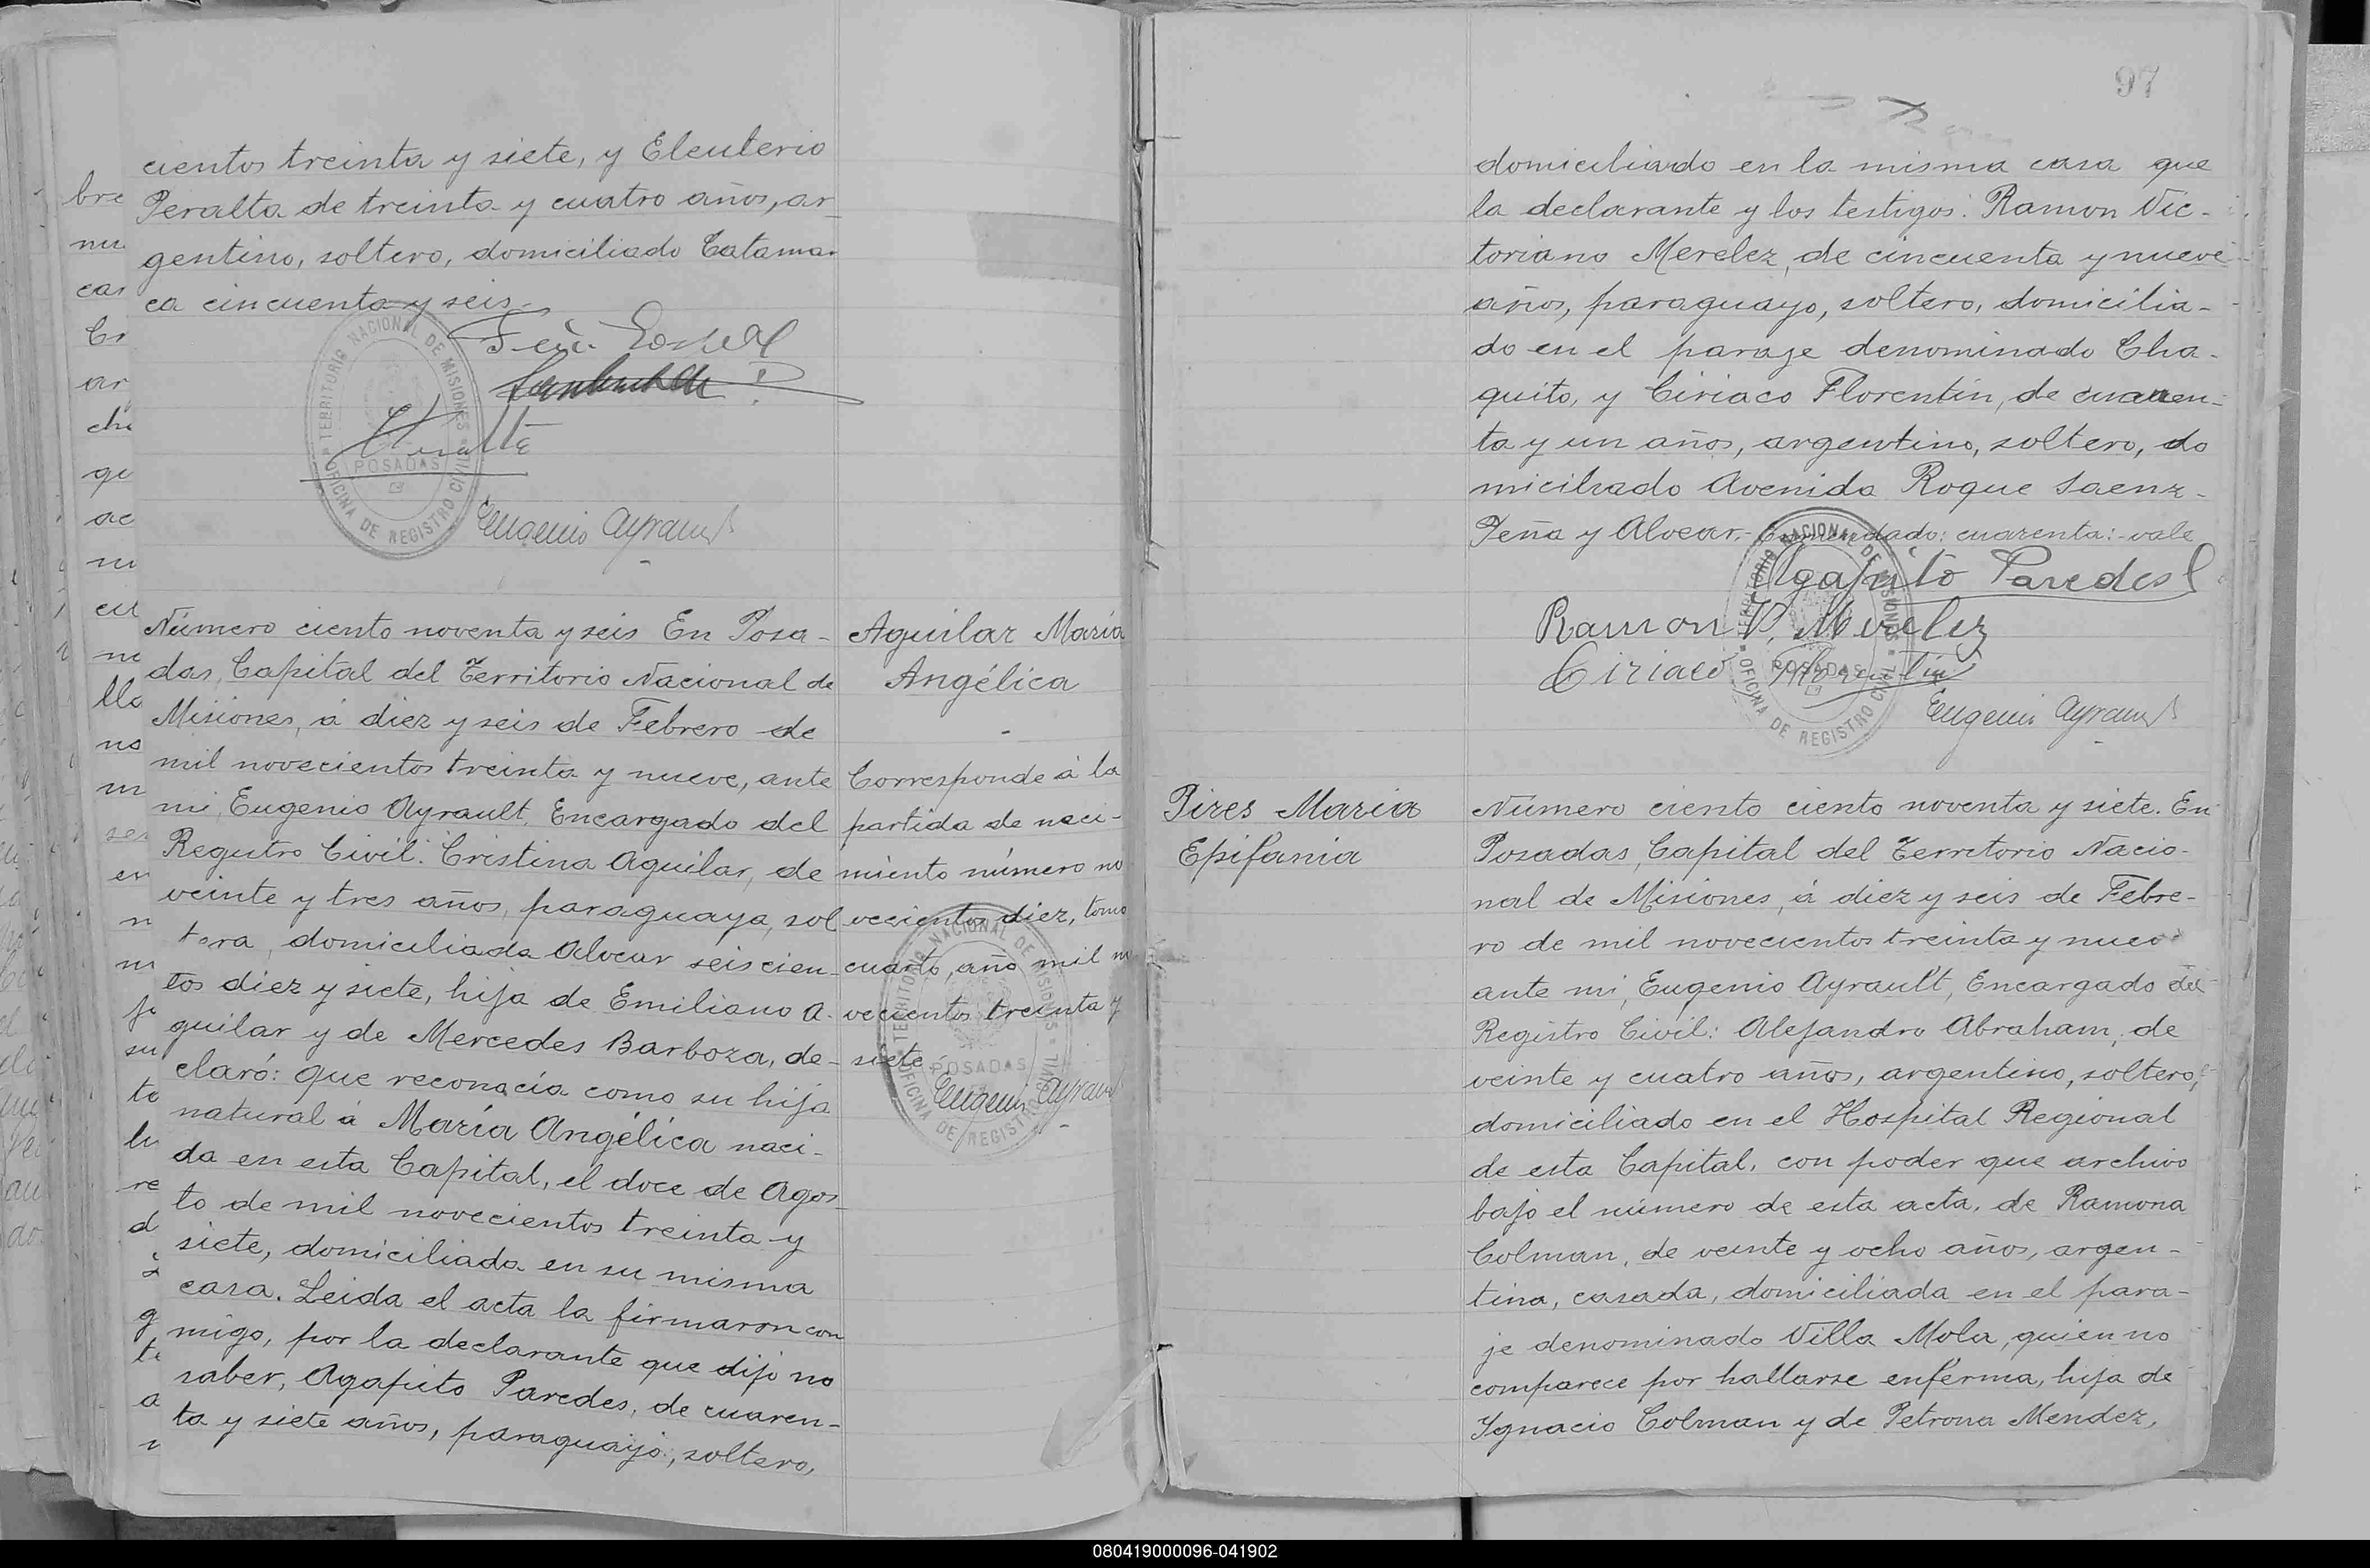 cientos treinta y siete, y Eleuterio
Peralta de treinta y cuatro años, ar-
gentino, soltero, domiciliado Catamar
ca cincuenta y seis.-
TERRITORIO NACIONAL DE MISIONES
POSADAS
OFICINA DE REGISTRO CIVIL
Eugenio Ayrault
Número ciento noventa y seis En Posa-
das, Capital del Territorio Nacional de
Misiones, á diez y seis de Febrero de
mil novecientos treinta y nueve, ante
mi, Eugenio Ayrault, Encargado del
Registro Civil: Cristina Aguilar, de
veinte y tres años, paraguaya, sol
tera, domiciliada Alvear seiscien-
tos diez y siete, hija de Emiliano A-
guilar y de Mercedes Barboza, de-
claró: que reconocía como su hija
natural á María Angélica naci-
da en esta Capital, el doce de Agos-
to de mil novecientos treinta y
siete, domiciliada en su misma
casa. Leida el acta la firmaron con
migo, por la declarante que dijo no
saber, Agapito Paredes, de cuaren-
ta y siete años, paraguayo, soltero,
Aguilar María
Angélica
-
Corresponde á la
partida de naci-
miento número no
vecientos diez, tomo
cuarto, año mil no
vecientos treinta y
siete
TERRITORIO NACIONAL DE MISIONES
POSADAS
OFICINA DE REGISTRO CIVIL
Eugenio Ayrault
97
domiciliado en la misma casa que
la declarante y los testigos: Ramon Vic-
toriano Merelez, de cincuenta y nueve
años, paraguayo, soltero, domicilia-
do en el paraje denominado Cha-
quito, y Ciriaco Florentin, de cuaren-
ta y un años, argentino, soltero, do
miciliado Avenida Roque Saenz-
Peña y Alvear.- Enmendado: cuarenta:- vale
Agapito Paredes
Ramon V. Merelez
Ciriaco Florentin
TERRITORIO NACIONAL DE MISIONES
POSADAS
OFICINA DE REGISTRO CIVIL
Eugenio Ayrault
Pires Maria
Epifania
Número ciento ciento noventa y siete. En
Posadas, Capital del Territorio Nacio-
nal de Misiones, á diez y seis de Febre-
ro de mil novecientos treinta y nueve
ante mi, Eugenio Ayrault, Encargado del
Registro Civil: Alejandro Abraham, de
veinte y cuatro años, argentino, soltero,
domiciliado en el Hospital Regional
de esta Capital, con poder que archivo
bajo el número de esta acta, de Ramona
Colman, de veinte y ocho años, argen-
tina, casada, domiciliada en el para-
je denominado Villa Mola, quien no
comparece por hallarse enferma, hija de
Ignacio Colman y de Petrona Mendez,
080419000096-041902